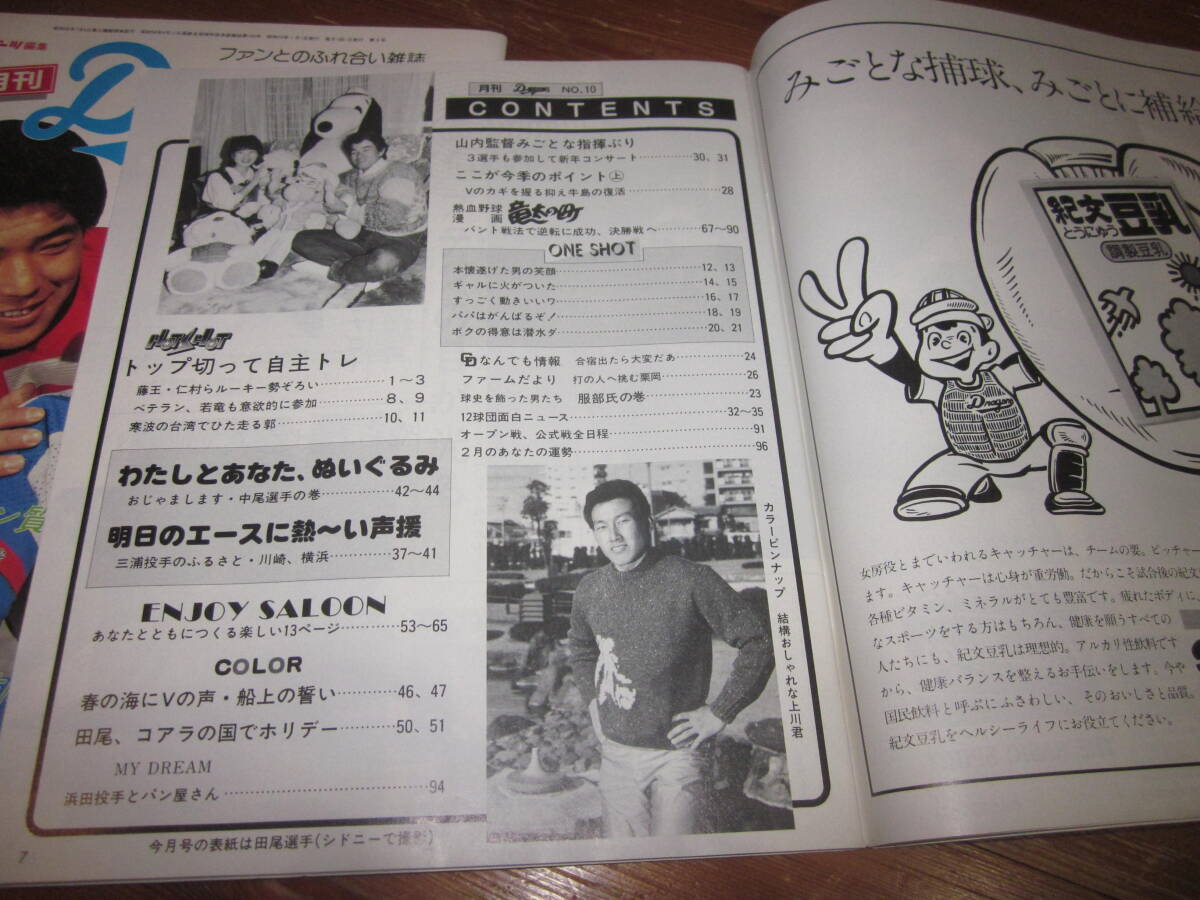 ファンとのふれ合い雑誌
月刊
月刊 Dragons NO.10
CONTENTS
HOT SHOT
トップ切って自主トレ
藤王・仁村らルーキー勢ぞろい…………1～3
ベテラン、若竜も意欲的に参加…………8、9
寒波の台湾でひた走る郭…………10、11
わたしとあなた、ぬいぐるみ
おじゃまします・中尾選手の巻…………42～44
明日のエースに熱〜い声援
三浦投手のふるさと・川崎、横浜…………37～41
ENJOY SALOON
あなたとともにつくる楽しい13ページ…………53～65
COLOR
春の海にVの声・船上の誓い…………46、47
田尾、コアラの国でホリデー…………50、51
MY DREAM
浜田投手とパン屋さん…………94
今月号の表紙は田尾選手(シドニーで撮影)
7
山内監督みごとな指揮ぶり
3選手も参加して新年コンサート…………30、31
ここが今季のポイント㊤
Vのカギを握る抑え牛島の復活…………28
熱血野球漫画 竜太の町
バント戦法で逆転に成功、決勝戦へ…………67～90
ONE SHOT
本懐遂げた男の笑顔…………12、13
ギャルに火がついた…………14、15
すっごく動きいいワ…………16、17
パパはがんばるぞ！…………18、19
ボクの得意は潜水ダ…………20、21
CDなんでも情報 合宿出たら大変だぁ…………24
ファームだより 打の人へ挑む栗岡…………26
球史を飾った男たち 服部氏の巻…………23
12球団面白ニュース…………32～35
オープン戦、公式戦全日程…………91
2月のあなたの運勢…………96
カラーピンナップ 結構おしゃれな上川君
みごとな捕球、みごとに補給
紀文豆乳
とうにゅう
調製豆乳
Dragons
女房役とまでいわれるキャッチャーは、チームの要。ピッチャー
ます。キャッチャーは心身が重労働。だからこそ試合後の紀文
各種ビタミン、ミネラルがとても豊富です。疲れたボディに、
なスポーツをする方はもちろん、健康を願うすべての
人たちにも、紀文豆乳は理想的。アルカリ性飲料です
から、健康バランスを整えるお手伝いをします。今や
国民飲料と呼ぶにふさわしい、そのおいしさと品質。
紀文豆乳をヘルシーライフにお役立てください。